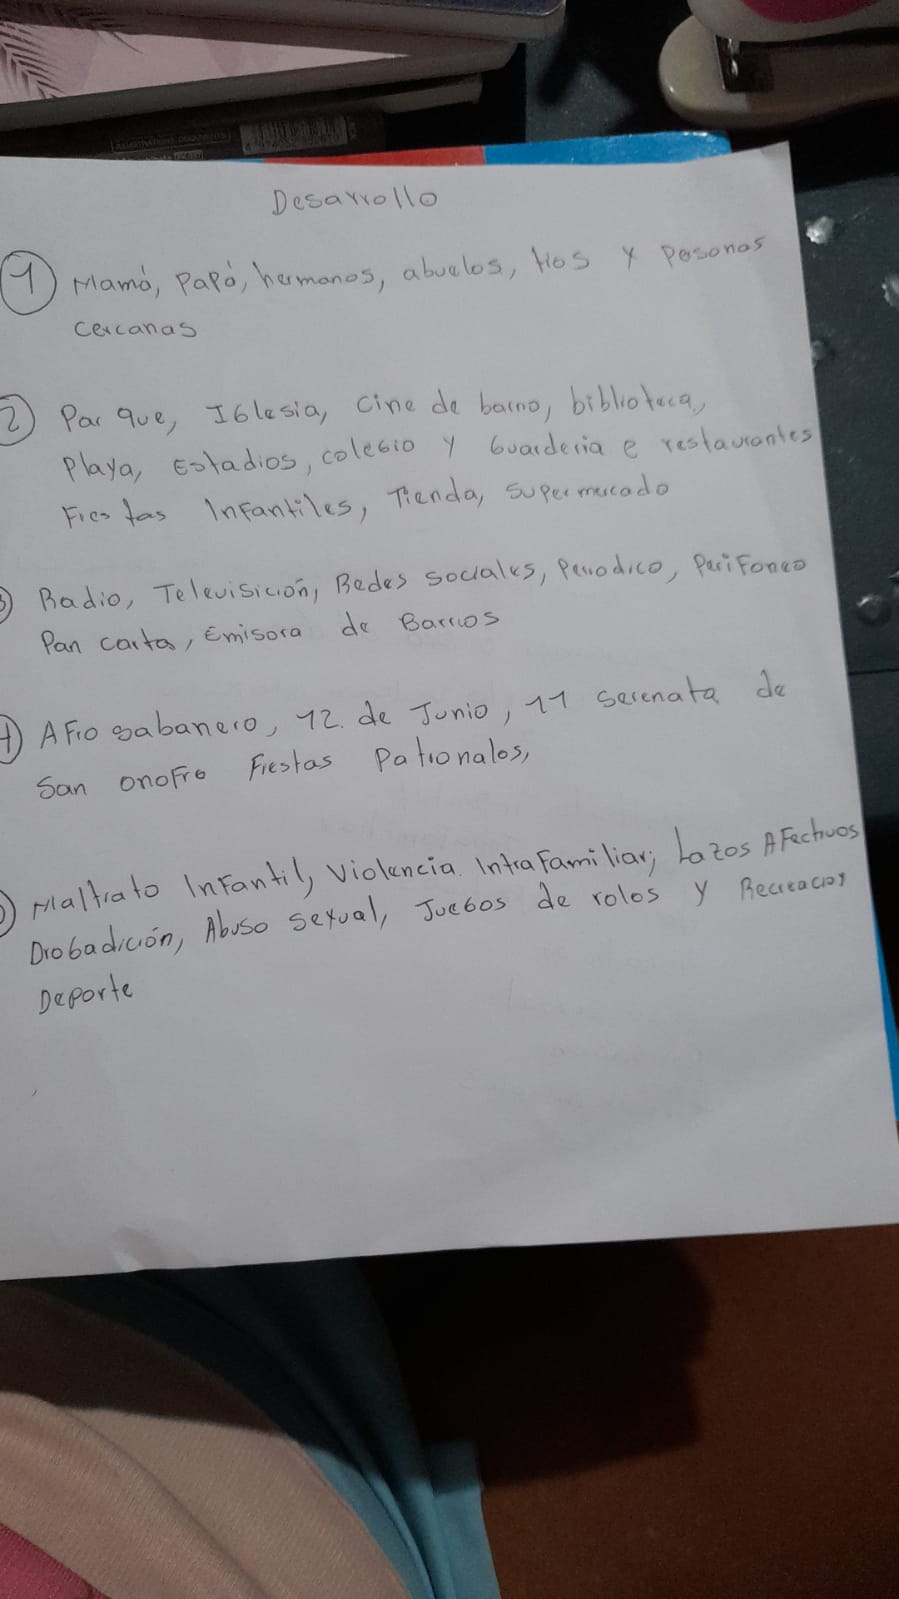 Desarrollo
1 Mamá, Papá, hermanos, abuelos, tios y Pesonas
cercanas
2 Par que, Iglesia, cine de barrio, biblioteca,
Playa, Estadios, colegio y Guarderia e restaurantes
Fies tas Infantiles, Tienda, supermercado
3 Radio, Televisición, Redes sociales, Periodico, PeriFoneo
Pan carta, Emisora de Barrios
4 AFro sabanero, 12. de Junio, 11 serenata de
San onoFre Fiestas Patronales,
Maltrato InFantil, Violencia. IntraFamiliar; Lazos AFectivos
Drogadicción, Abuso sexual, Juegos de roles y Recreación
Deporte